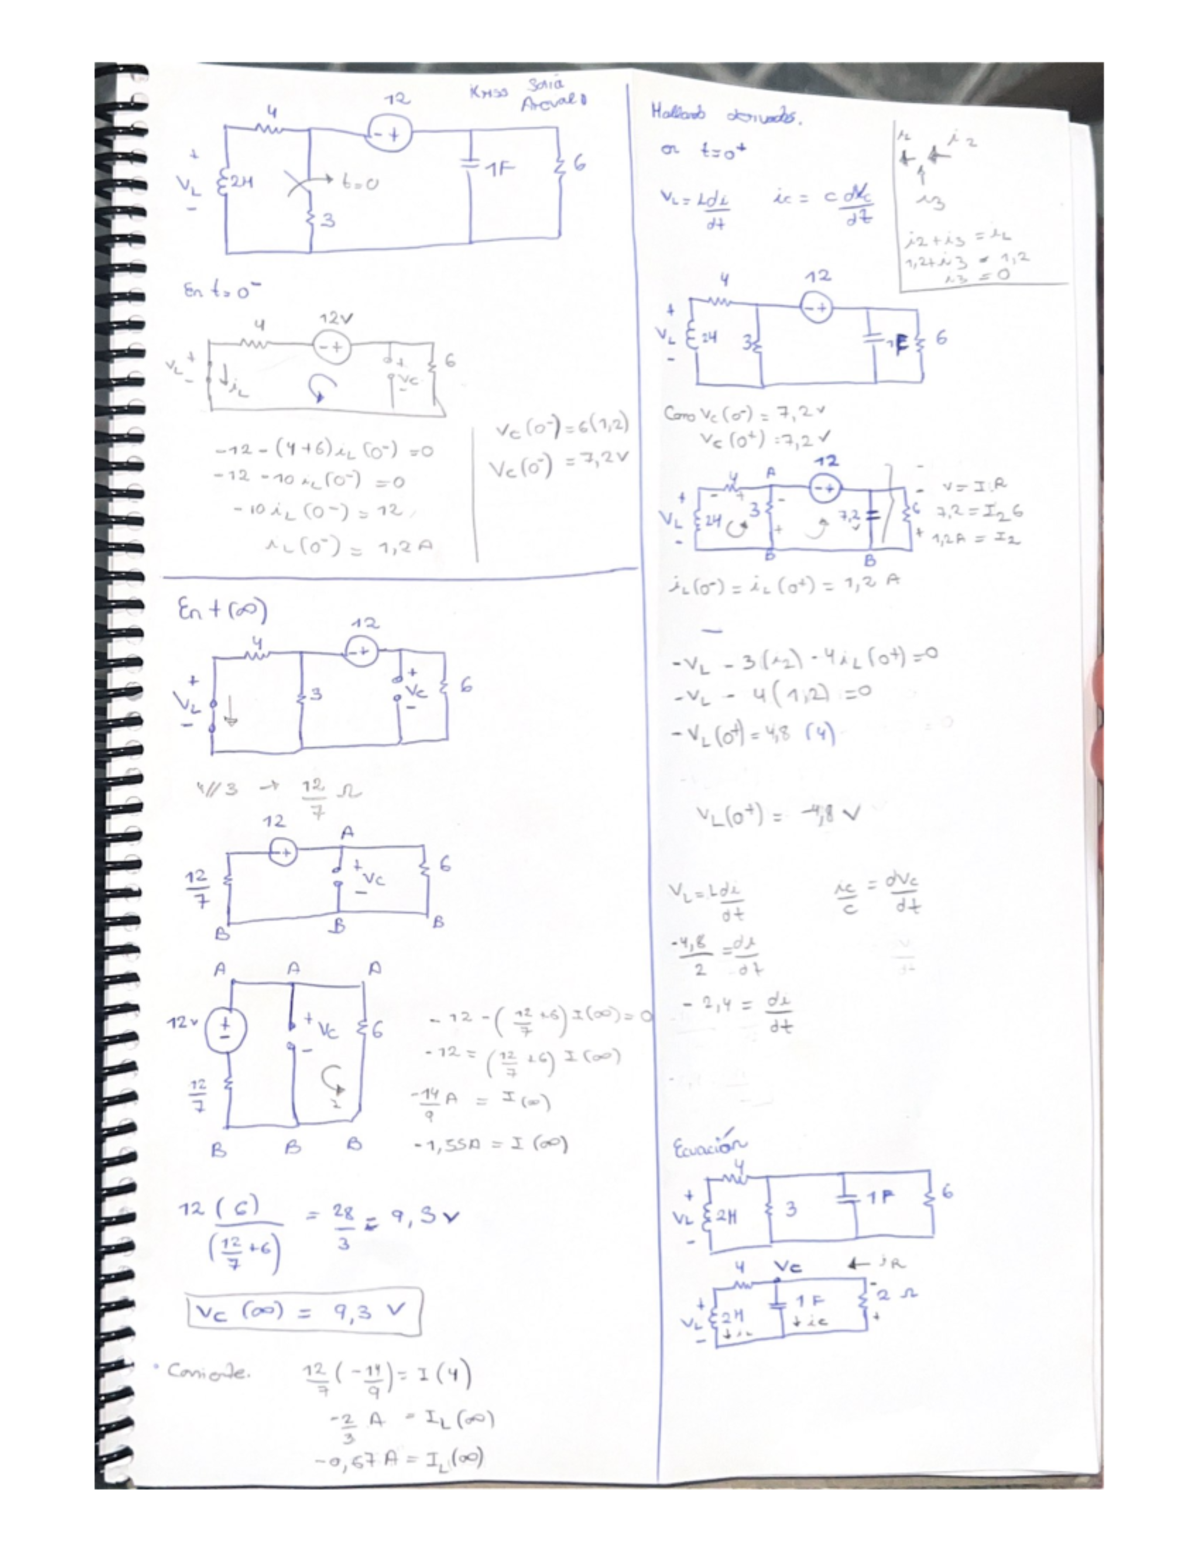 Soria
Arevalo
4
12
+
VL
-
2H
t=0
3
- +
1F
6
En t=0⁻
4
12V
- +
VL
+
-
iL
+
VC
-
6
-12-(4+6)iL(0⁻)=0
-12-10iL(0⁻)=0
-10iL(0⁻)=12
iL(0⁻)=1,2A
VC(0⁻)=6(1,2)
VC(0⁻)=7,2V
En t(∞)
4
12
- +
+
VL
-
3
+
VC
-
6
4//3 → 12/7 Ω
12
A
- +
12/7
+
VC
-
6
B
B
B
A
A
A
12v
+
-
+
VC
-
6
12/7
2
B
B
B
-12-(12/7+6)I(∞)=0
-12=(12/7+6)I(∞)
-14/9 A = I(∞)
-1,55A=I(∞)
12(6)/(12/7+6) = 28/3 = 9,3V
VC(∞) = 9,3 V
• Corriente.
12/7(-14/9)=I(4)
-2/3 A = IL(∞)
-0,67A=IL(∞)
Hallando derivadas.
en t=0⁺
VL=Ldi/dt
ic=C dVc/dt
i2
i3
i2+i3=iL
1,2+i3=1,2
i3=0
4
12
- +
+
VL
-
2H
3
1F
6
Como VC(0⁻)=7,2V
VC(0⁺)=7,2V
12
4
A
- +
+
VL
-
2H
3
7,2
6
B
B
V=I.R
7,2=I2 6
1,2A=I2
iL(0⁻)=iL(0⁺)=1,2 A
-VL-3(i2)-4iL(0⁺)=0
-VL-4(1,2)=0
-VL(0⁺)=4,8 (4)
VL(0⁺)=-4,8V
VL=Ldi/dt
ic/c=dVc/dt
-4,8/2=di/dt
-2,4=di/dt
Ecuación
4
+
VL
-
2H
3
1F
6
4
VC
← iR
+
VL
-
2H
↓iL
1F
↓ic
-
2Ω
+